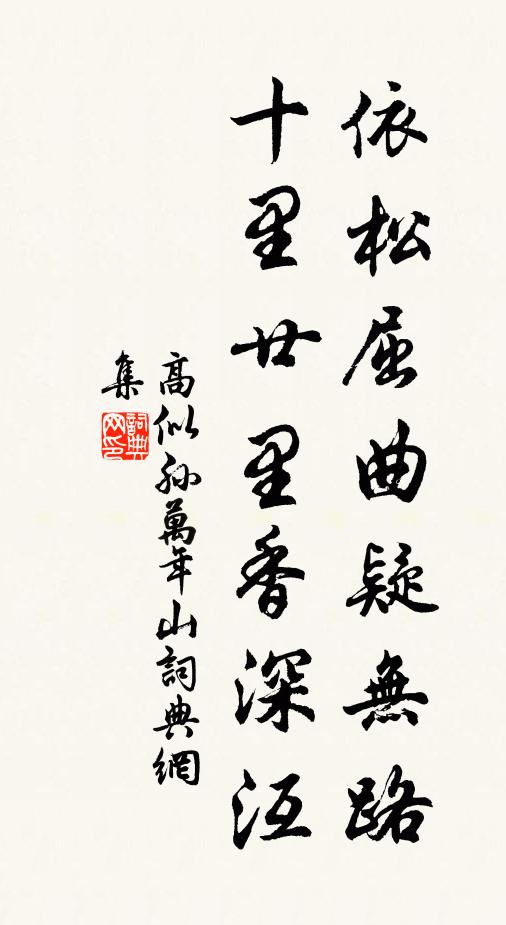 依松屈曲疑無路
十里廿里香深沍
高似孫萬年山詞典網
集
詞典
网印